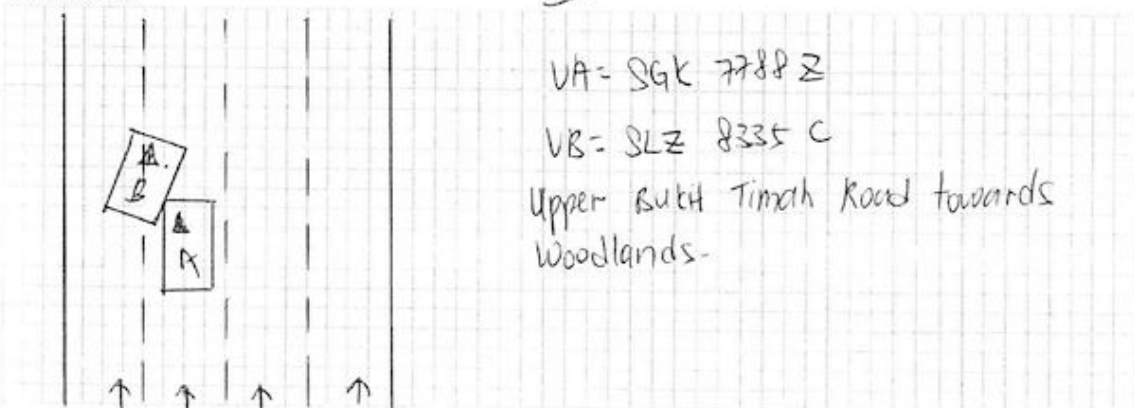 VA= SGK 7788 Z
VB= SLZ 8335 C
Upper Bukit Timah Road towards
Woodlands.
B
A